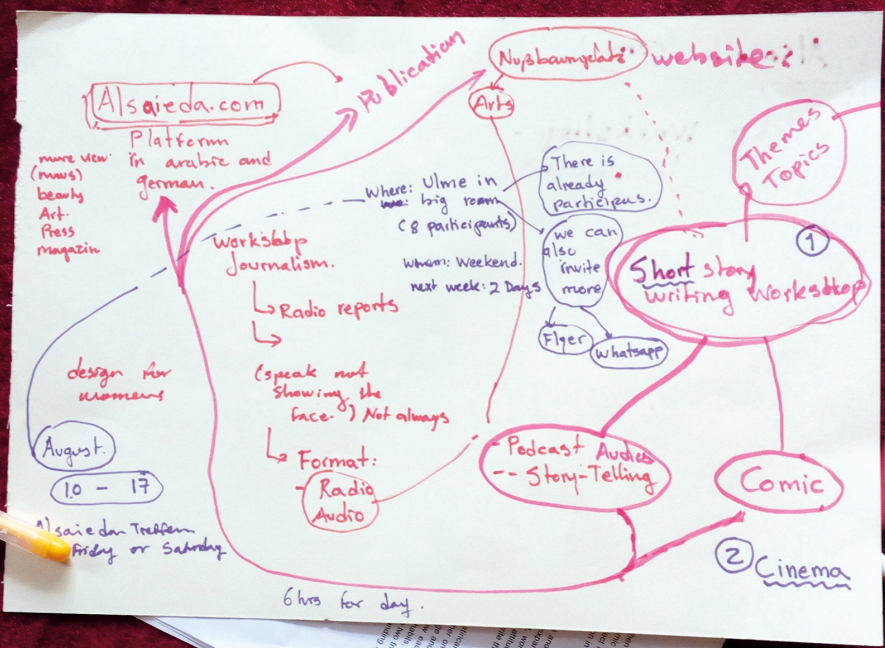 Alsaieda.com
Platform
in arabic and
german.
more view
(news)
beauty
Art.
Press
magazin
Publication
Nußbaumplatz
website:
Arts
Themes
Topics
Where: Ulme in
big room
(8 participants)
Weekend.
next week: 2 Days
There is
already
participus.
we can
also
invite
more
Flyer
Whatsapp
1
Short story
writing Worksthop
Workshop
Journalism.
Radio reports
(speak not
showing the
face.) Not always
Format:
- Radio
Audio
design for
womens
August.
10 - 17
Alsaiedan Treffen
Friday or Saturday
- Podcast Audios
-- Story-Telling
Comic
2 Cinema
6 hrs for day.